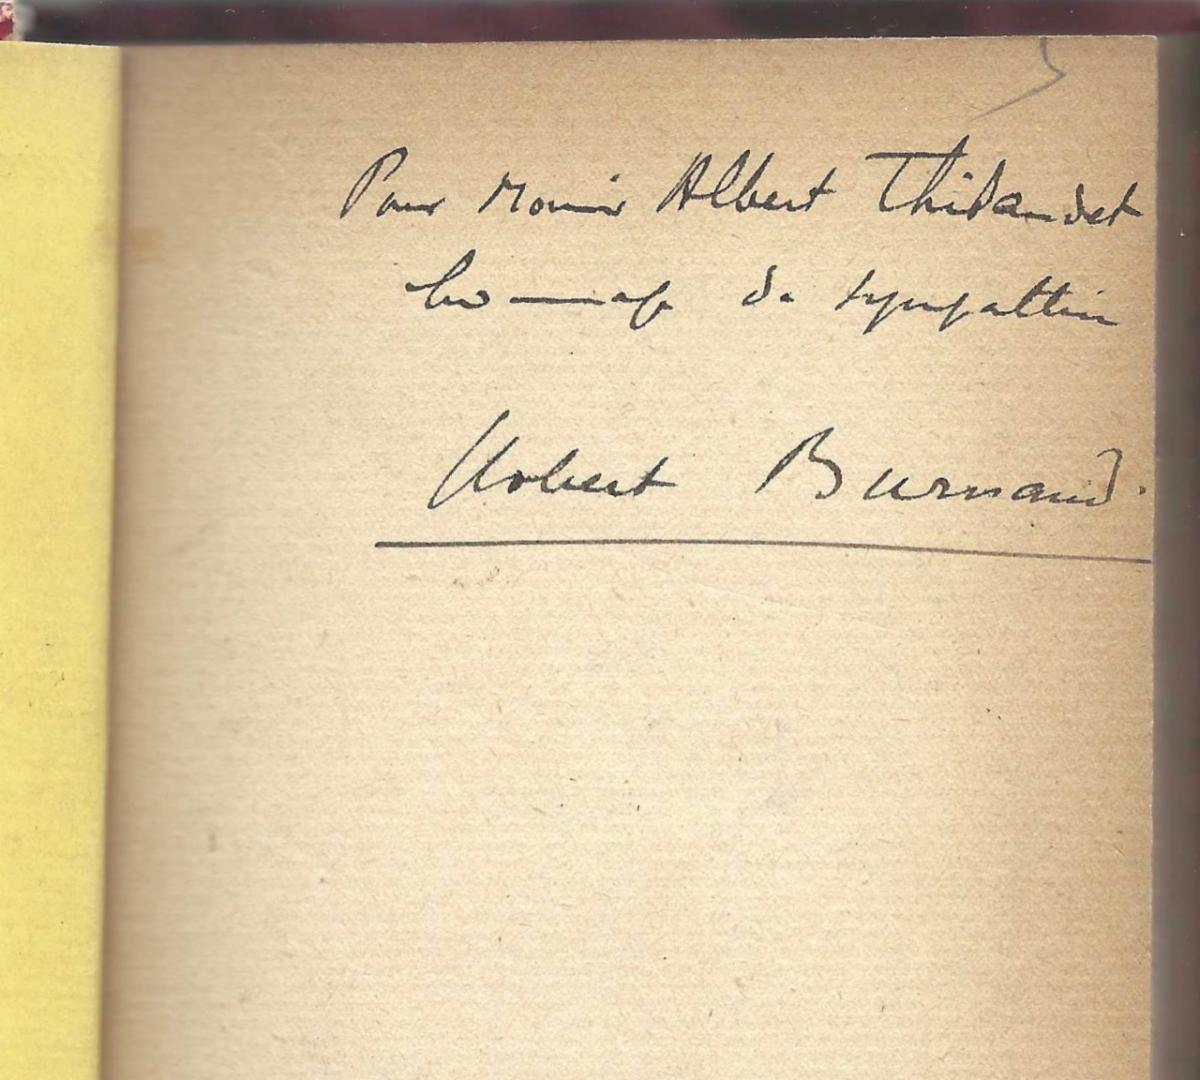 Pour Monsieur Albert Thibaudet
hommage de sympathie
Robert Burnand.